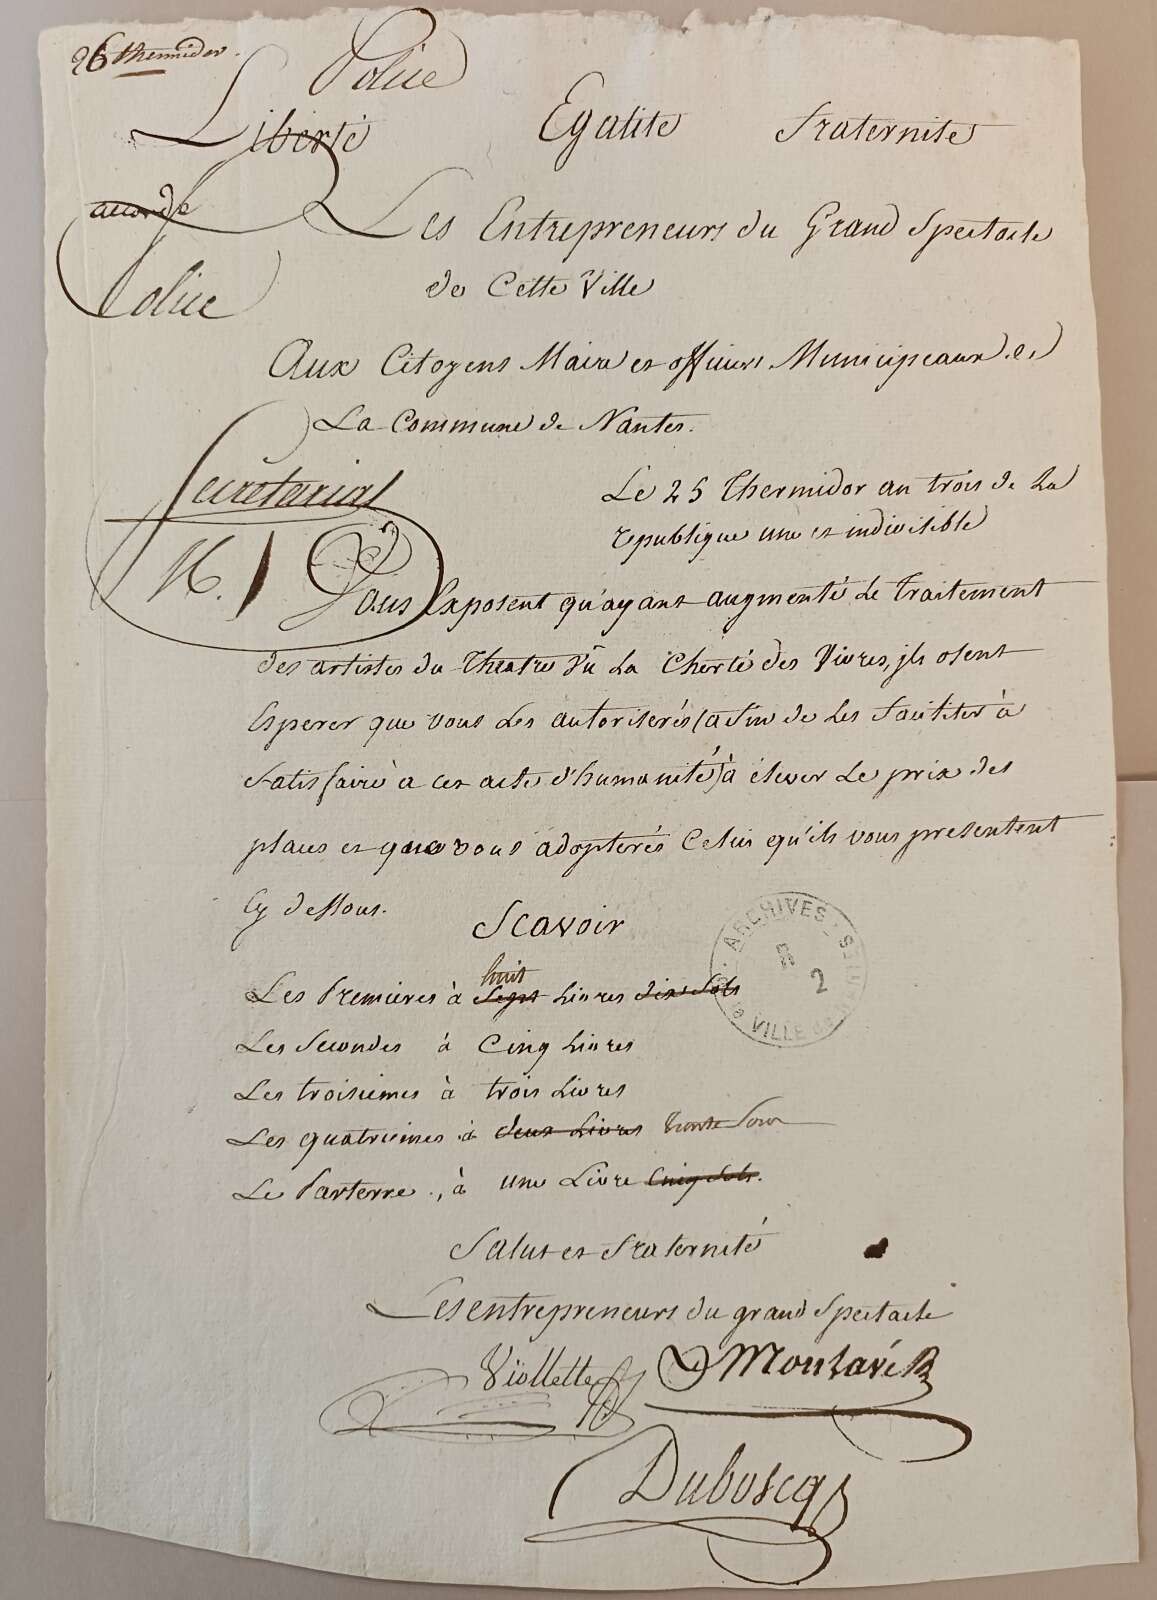 26 thermidor.
Police
Liberté Egalité Fraternité
accordé
Les Entrepreneurs du Grand Spectacle
de Cette Ville
Police
Aux Citoyens Maire et officiers Municipeaux de
La Commune de Nantes.
Secrétariat
Le 25 Thermidor an trois de La
republique une et indivisible
N. 1
Vous Exposent qu'ayant augmenté Le Traitement
des artistes du Theatre Vû La Cherté des Vivres, jls osent
Esperer que vous Les autoriserés (afin de Les faciliter à
satisfaire à cet acte d'humanité) à élever Le prix des
places et que vous adopterés Celui qu'ils vous presentent
Cy dessous.
Scavoir
huit
Les Premieres à Sept Livres dix Sols
Les Secondes à Cinq Livres
Les troisiemes à trois Livres
Les quatriemes à deux Livres trente Sous
Le Parterre, à une Livre Cinq Sols.
Salut et Fraternité
Les entrepreneurs du grand Spectacle
Viollette DMontavé
Duboscq
ARCHIVES
2
VILLE de NANTES